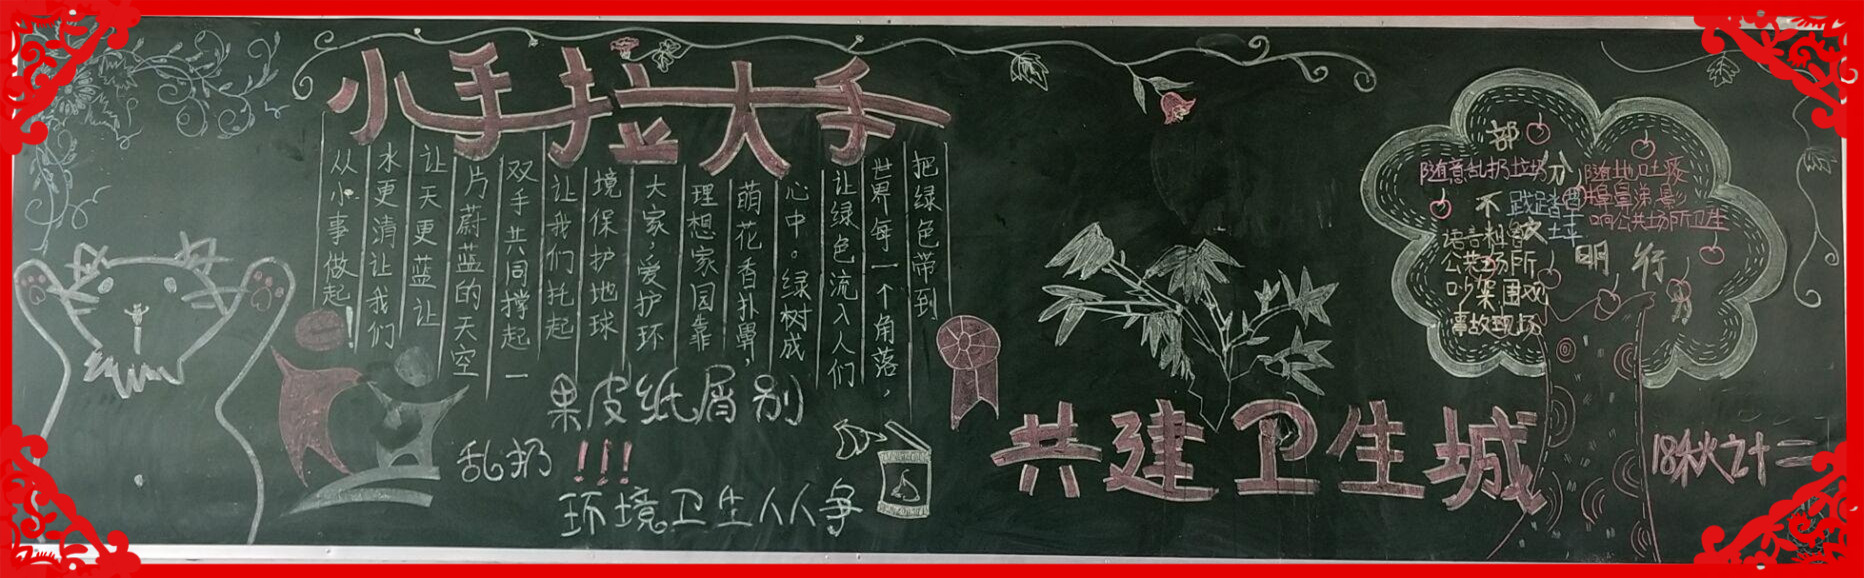 小手拉大手
把绿色带到
世界每一个角落，
让绿色流入人们
心中。绿树成
萌花香扑鼻，
理想家园靠
大家，爱护环
境保护地球
让我们托起
双手共同撑起一
片蔚蓝的天空
让天更蓝让
水更清让我们
从小事做起！
果皮纸屑别
乱扔!!!
环境卫生人人争
共建卫生城
部分不文明行
随意乱扔垃圾
随地吐痰
鼻涕影
响公共场所卫生
践踏草坪
语言
公共场所
吵架围观
事故现场
18秋之十二